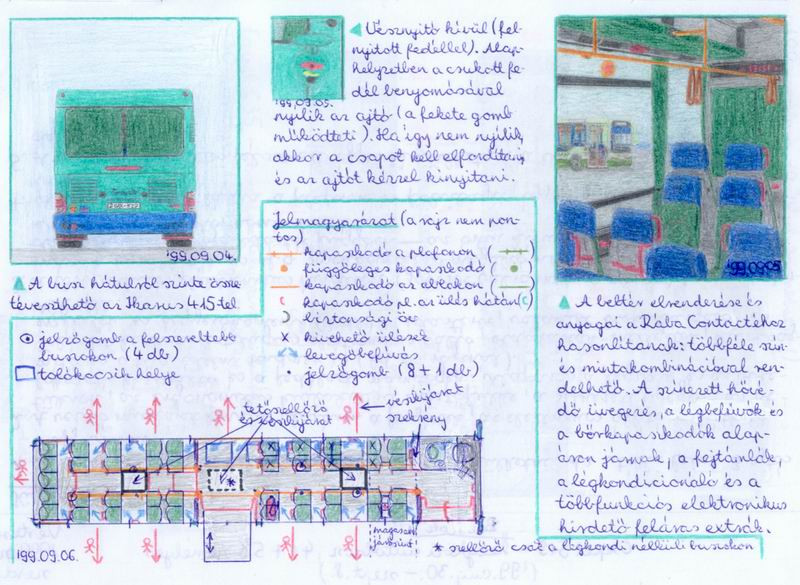 Vésznyitó kívül (fel-
nyitott fedéllel). Alap-
helyzetben a csukott fe-
dél benyomásával
'99.09.05.
nyílik az ajtó (a fekete gomb
működteti). Ha így nem nyílik,
akkor a csapot kell elfordítani
és az ajtót kézzel kinyitani.
'99.09.04.
'99.09.05
A busz hátulról szinte össze-
téveszthető az Ikarus 415-tel.
Jelmagyarázat (a rajz nem pon-
tos)
kapaszkodó a plafonon ( )
függőleges kapaszkodó ( )
kapaszkodó az ablakon ( )
kapaszkodó pl. az ülés hátán ( )
biztonsági öv
x kivehető ülések
levegőbefúvás
jelzőgomb (8 + 1 db)
jelzőgomb a felszereltebb
buszokon (4 db)
tolókocsik helye
A beltér elrendezése és
anyagai a Rába Contactéhoz
hasonlítanak: többféle szín-
és mintakombinációval ren-
delhető. A színezett hővé-
dő üvegezés, a légbefúvók és
a bőrkapaszkodók alap-
áron járnak, a fejtámlák,
a légkondicionáló és a
többfunkciós elektronikus
hirdető feláras extrák.
tetőszellőző
és vészkijárat
vészkijárat
szekrény
magasan
járószint
* szellőző, csak a légkondi nélküli buszokon
'99.09.06.